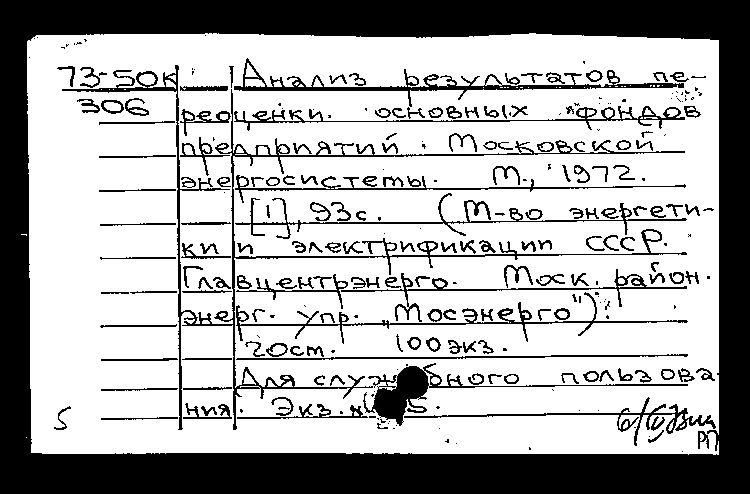 73-50к Анализ результатов пе-
306 реоценки основных фондов
предприятий Московской
энергосистемы. М., 1972.
[1], 93с. (М-во энергети-
ки и электрификации СССР.
Главцентрэнерго. Моск. район.
энерг. упр. „Мосэнерго").
20см. 100экз.
Для служебного пользова-
ния. Экз. №5.
5
РП